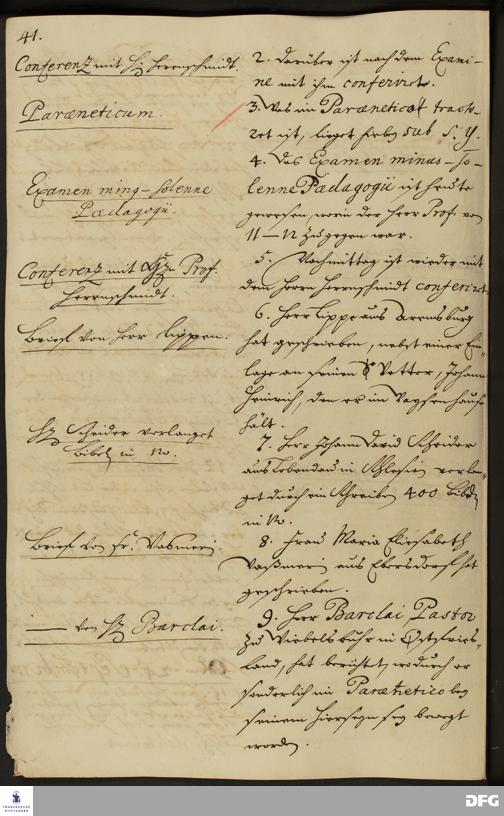 41.
Conferenz mit Hℓ Herrnschmidt.
2. Darüber ist nach dem Exami-
ne mit ihm conferirt.
Paræneticum.
3. Was im Parænetico tracti-
ret ist, lieget hiebey sub S. y.
Examen ming-solenne
Pædagogii.
4. Das Examen minus-so-
lenne Pædagogii ist heute
gewesen, worin der Herr Prof. von
11–12 zugegen war.
Conferenz mit Prof.
Herrnschmidt.
5. Nachmittag ist wieder mit
dem Herrn Herrnschmidt conferirt.
Brief von Herr Lippen.
6. Herr Lippe aus Arensburg
hat geschrieben, nebst einer Ein-
lage an seinen Vetter, Johann
Heinrich, den er im Waysenhause
hält.
Scheider verlanget
Bibeln in 12o.
7. Herr Johann David Scheider
aus Lobendau in Schlesien verlan-
get durch ein Schreiben 400 Bibeln
in 12o.
Brief von Fr. Vasmerin.
8. Frau Maria Eliesabeth
Vaßmerin aus Ebersdorf hat
geschrieben.
— von Barclai.
9. Herr Barclai, Pastor
zu Wiebelsbuhr in Ostfries-
land, hat berichtet, wodurch er
sonderlich im Parænetico bey
seinem hierseyn sey bewegt
worden.
FRANCKESCHE
STIFTUNGEN
DFG